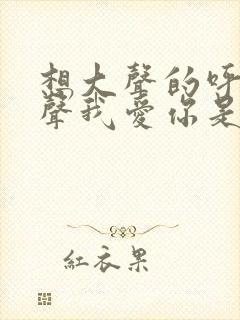 想大聲的呼
聲我愛你是
紅衣果